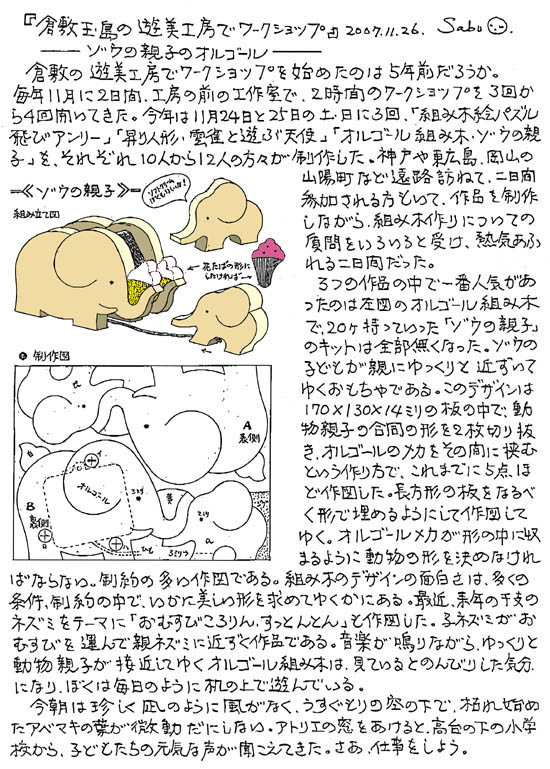 『倉敷玉島の遊美工房でワークショップ』2007.11.26. Sabu
ゾウの親子のオルゴール
倉敷の遊美工房でワークショップを始めたのは5年前だろうか。
毎年11月に2日間、工房の前の工作室で、2時間のワークショップを3回か
ら4回開いてきた。今年は11月24日と25日の土・日に3回、「組み木絵パズル
飛びアンリー」「昇り人形・雲雀と遊ぶ天使」「オルゴール組み木・ゾウの親
子」を、それぞれ10人から12人の方々が制作した。神戸や東広島、岡山の
山陽町など遠路訪ねて、二日間
参加される方もいて、作品を制作
しながら、組み木作りについての
質問をいろいろと受け、熱気あふ
れる二日間だった。
3つの作品の中で一番人気があ
ったのは左図のオルゴール組み木
で、20ケ持っていった「ゾウの親子」
のキットは全部無くなった。ゾウの
子どもが親にゆっくりと近ずいて
ゆくおもちゃである。このデザインは
170×130×14ミリの板の中で、動
物親子の合同の形を2枚切り抜
き、オルゴールのメカをその間に挟む
という作り方で、これまでに5点ほ
ど作図した。長方形の板をなるべ
く形で埋めるようにして作図して
ゆく。オルゴールメカが形の中に収
まるように動物の形を決めなけれ
ばならない。制約の多い作図である。組み木のデザインの面白さは、多くの
条件、制約の中で、いかに美しい形を求めてゆくかにある。最近、来年の干支の
ネズミをテーマに「おむすびころりん、すっとんとん」と作図した。子ネズミがお
むすびを運んで親ネズミに近ずく作品である。音楽が鳴りながら、ゆっくりと
動物親子が接近してゆくオルゴール組み木は、見ているとのんびりした気分
になり、ぼくは毎日のように机の上で遊んでいる。
今朝は珍しく凪のように風がなく、うすぐもりの空の下で、枯れ始め
たアベマキの葉が微動だにしない。アトリエの窓をあけると、高台の下の小学
校から、子どもたちの元気な声が聞こえてきた。さあ、仕事をしよう。
≪ゾウの親子≫
組み立て図
花たばの形に
したければ
制作図
A
裏側
オルゴール
B
裏側
ひも